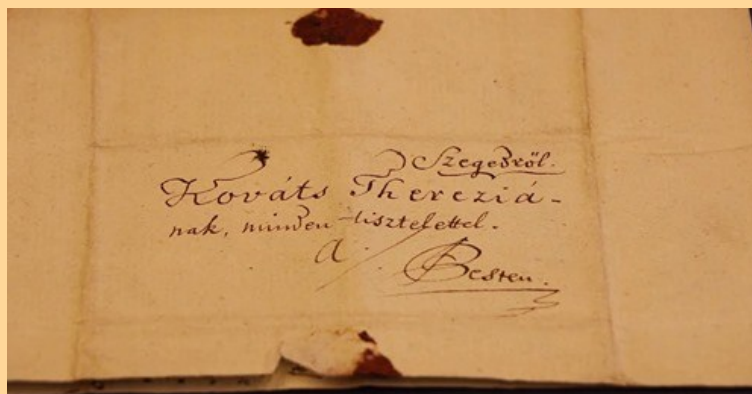 Szegedről.
Kováts Thereziá-
nak, minden tisztelettel.
a/
Pesten.